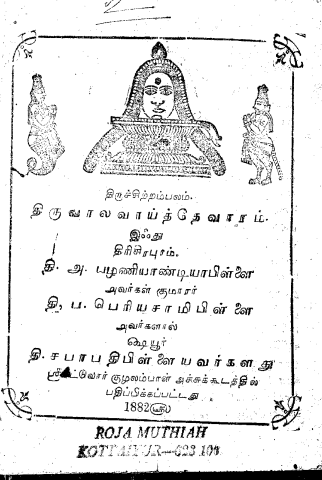 திருச்சிற்றம்பலம்.
திருவாலவாய்த்தேவாரம்.
இஃது
திரிசிரபுரம்.
தி. அ. பழனியாண்டியாபிள்ளை
அவர்கள் குமாரர்
தி, ப. பெரியசாமிபிள்ளை
அவர்களால்
ஷெயூர்
தி. சபாபதிபிள்ளையவர்களது
குழலம்பாள் அச்சுக்கூடத்தில்
பதிப்பிக்கப்பட்டது
1882
ROJA MUTHIAH
KOTTAIYUR—623 106